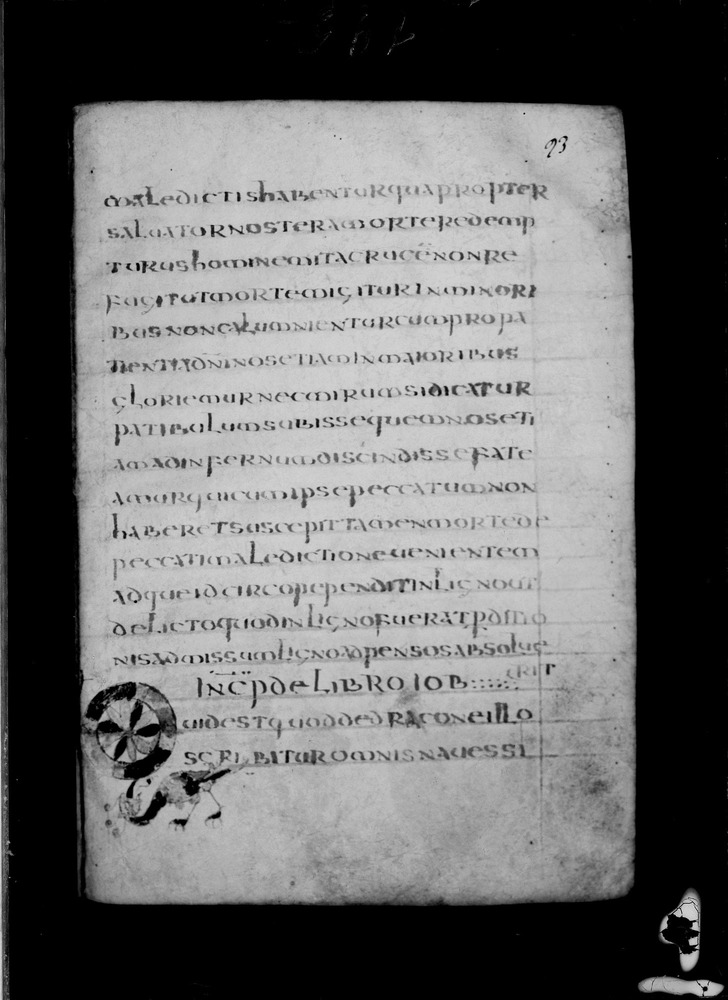 93
maledictis habentur quapropter
salvator noster a morte redemp
turus hominem ita cruce non re
fugit ut mortem igitur in minori
bus non calumnientur cum pro pa
tientia dni nos etiam in maioribus
gloriemur nec mirum si dicatur
patibulum subisse quem nos eti
am ad infernum discindisse fate
amur qui cum ipse peccatum non
haberet suscepit tamen morte de
peccati maledictione venientem
adque idcirco pependit in ligno ut
delicto quod in ligno fuerat pditio
nis admissum ligno adpensos absolve
rit
Incp de libro Iob
Quid est quod de dracone illo
scribitur omnis naves si